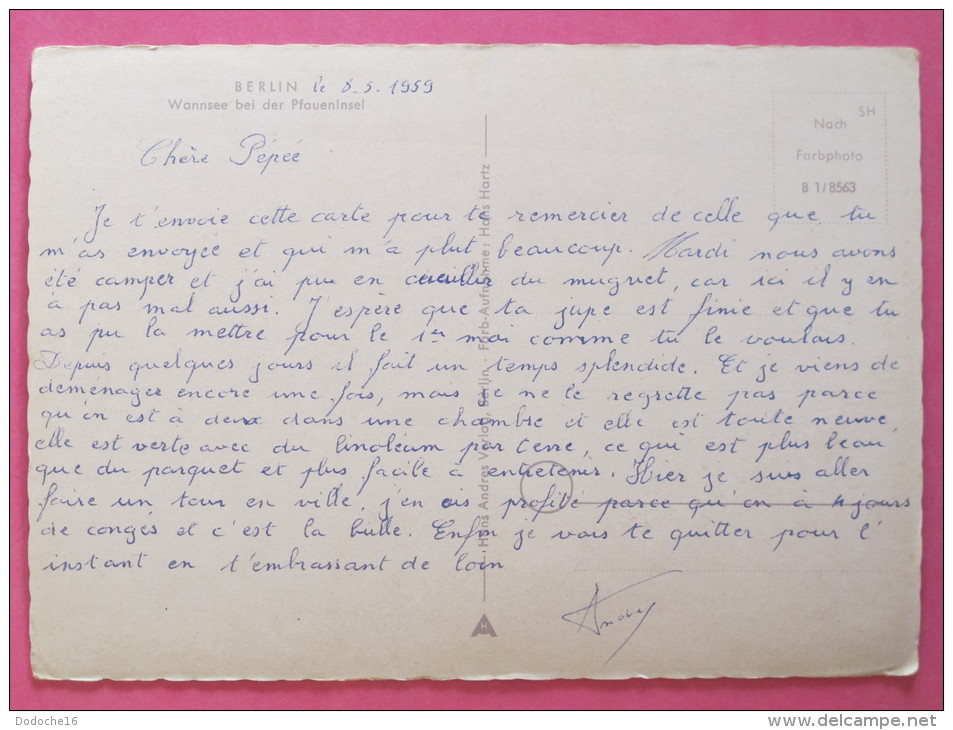 BERLIN le 5-5-1959
Wannsee bei der Pfaueninsel
SH
Nach
Farbphoto
B 1/8563
Chère Pépée
Je t'envoie cette carte pour te remercier de celle que tu
m'as envoyée et qui m'a plut beaucoup. Mardi nous avons
été camper et j'ai pu en cueillir du muguet, car ici il y en
à pas mal aussi. J'espère que ta jupe est finie et que tu
as pu la mettre pour le 1er mai comme tu le voulais.
Depuis quelques jours il fait un temps splendide. Et je viens de
déménager encore une fois, mais je ne le regrette pas parce
qu'on est à deux dans une chambre et elle est toute neuve
elle est verte avec du linoléum par terre, ce qui est plus beau
que du parquet et plus facile à entretenir. Hier je suis aller
faire un tour en ville, j'en ais profité parce qu'on à 4 jours
de congés et c'est la bulle. Enfin je vais te quitter pour l'
instant en t'embrassant de loin
Hans Andres Verlag, Berlin Farb-Aufnahme: Hans Hartz
H
Dodoche16
www.delcampe.net